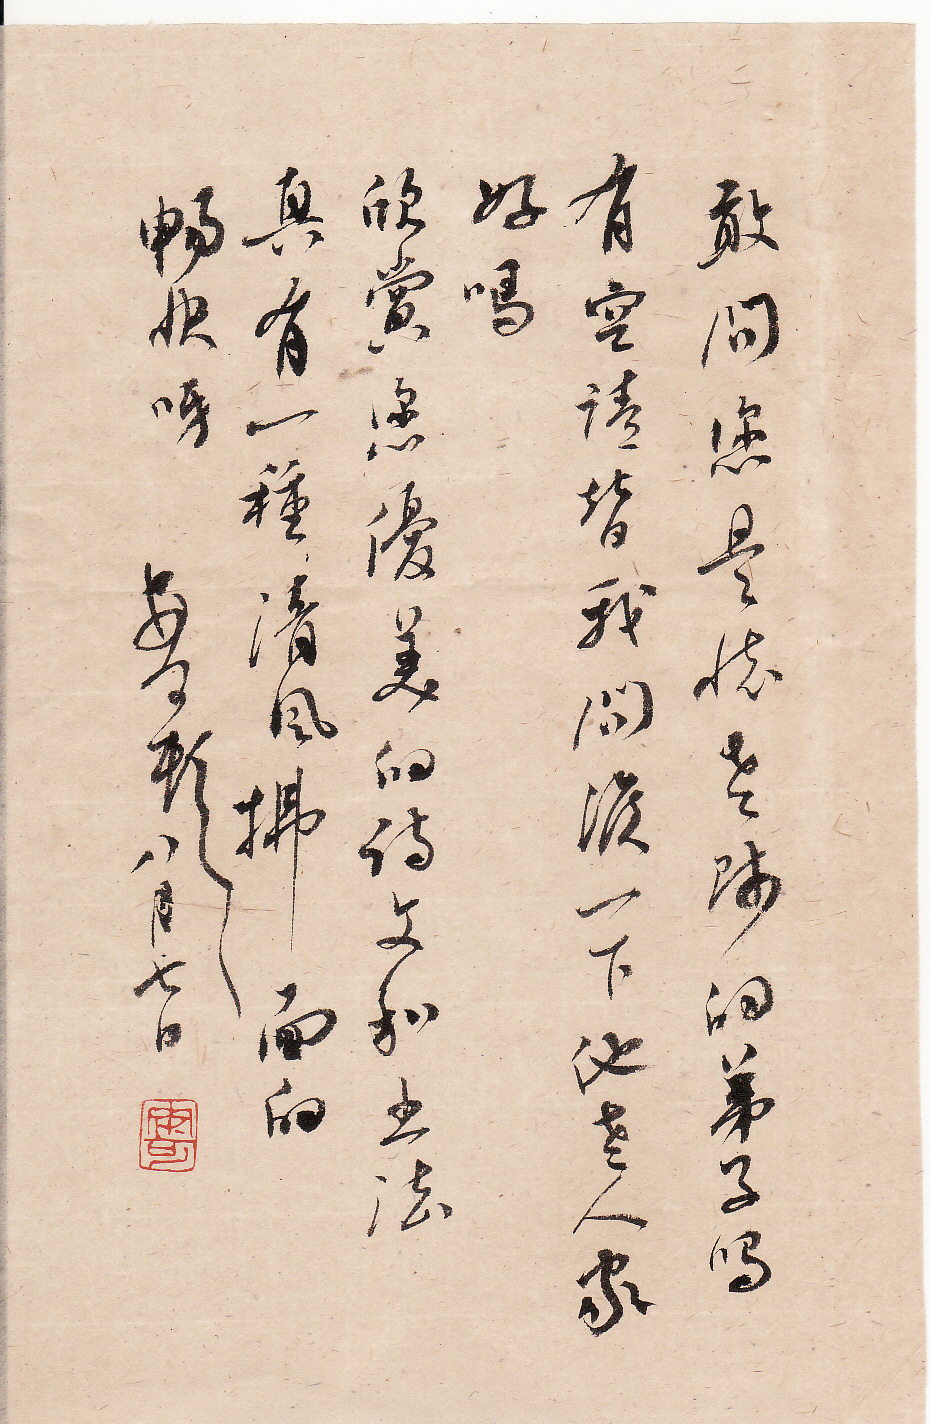 敢問您是懷老師的弟子嗎
有空請替我問候一下他老人家
好嗎
欣賞您優美的詩文和书法
真有一種清風拂面的
暢快呀
頓 八月七日